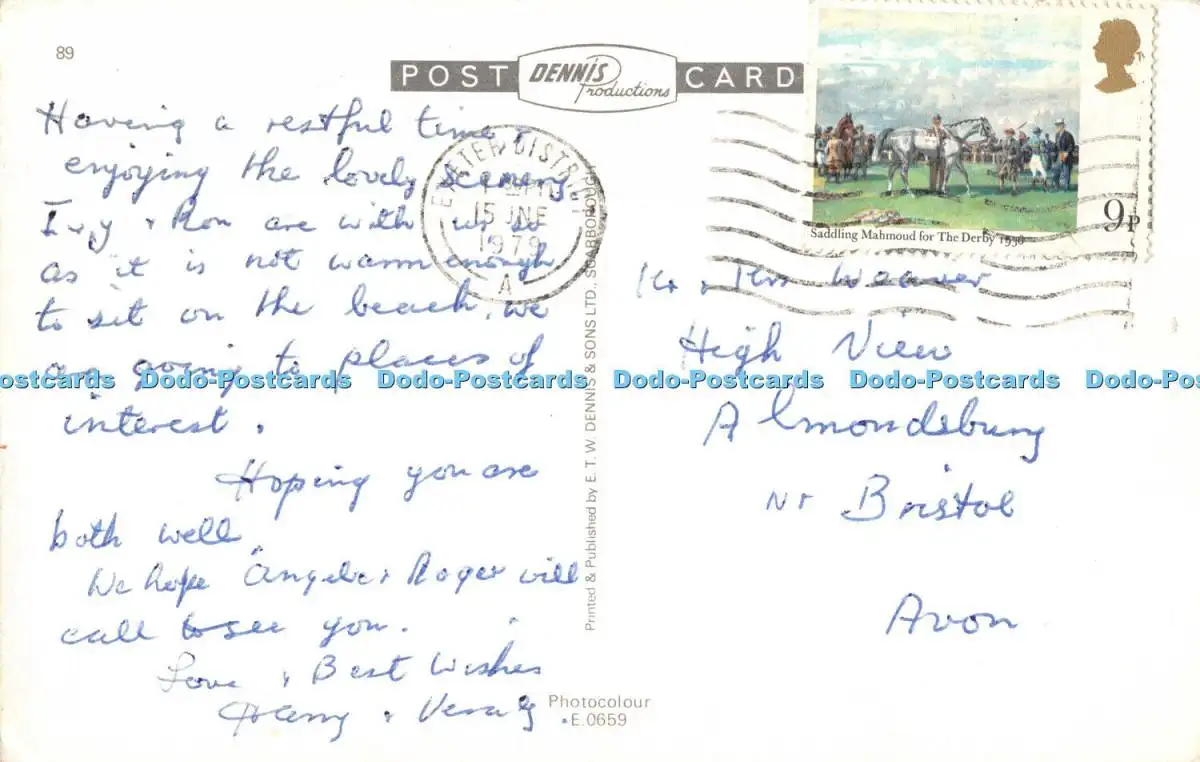 89
POST DENNIS Productions CARD
Having a restful time,
enjoying the lovely scenery.
Ivy & Ron are with us so
as it is not warm enough
to sit on the beach, we
are going to places of
interest.
Hoping you are
both well
We hope Angela & Roger will
call to see you.
Love & Best Wishes
Harry &
EXETER DISTRICT
15 JNE
1979
A
Printed & Published by E. T. W. DENNIS & SONS LTD., SCARBOROUGH
Photocolour
E.0659
Saddling Mahmoud for The Derby 1936
9P
Mr & Mrs Weaver
High View
Almondsbury
Nr Bristol
Avon
Dodo-Postcards Dodo-Postcards Dodo-Postcards Dodo-Postcards Dodo-Postcards Dodo-Postcards